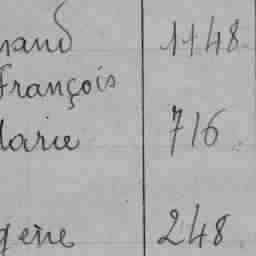 nand 1148.
François
Marie 716.
gène 248.